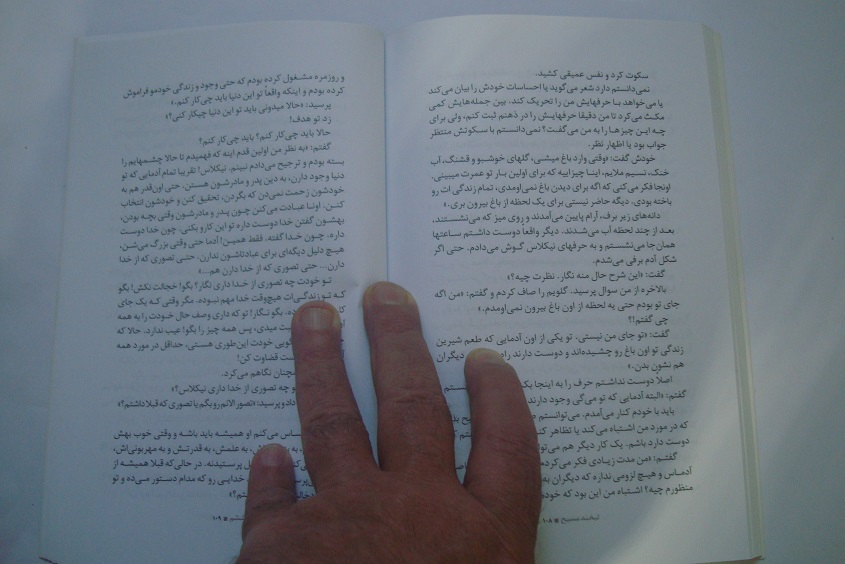 سکوت کرد و نفس عمیقی کشید.
نمی‌دانستم دارد شعر می‌گوید یا احساسات خودش را بیان می‌کند
یا می‌خواهد با حرفهایش من را تحریک کند. بین جمله‌هایش کمی
مکث می‌کرد تا من دقیقا حرفهایش را در ذهنم ثبت کنم، ولی برای
چه این چیزها را به من می‌گفت؟ نمی‌دانستم با سکوتش منتظر
جواب بود یا اظهار نظر.
خودش گفت: «وقتی وارد باغ میشی، گلهای خوشبو و قشنگ، آب
خنک، نسیم ملایم، اینا چیزاییه که برای اولین بار تو عمرت میبینی.
اونجا فکر می‌کنی که اگه برای دیدن باغ نمی‌اومدی، تمام زندگی‌ات رو
باخته بودی. دیگه حاضر نیستی برای یک لحظه از باغ بیرون بری.»
دانه‌های زیر برف، آرام پایین می‌آمدند و روی میز که می‌نشستند،
بعد از چند لحظه آب می‌شدند. دیگر واقعاً دوست داشتم ساعتها
همان‌جا می‌نشستم و به حرفهای نیکلاس گوش می‌دادم. حتی اگر
شکل آدم برفی می‌شدم.
گفت: «این شرح حال منه نگار. نظرت چیه؟»
بالاخره از من سوال پرسید. گلویم را صاف کردم و گفتم: «من اگه
جای تو بودم حتی یه لحظه از اون باغ بیرون نمی‌اومدم.»
چی گفتم!؟
گفت: «تو جای من نیستی. تو یکی از اون آدمایی که طعم شیرین
زندگی تو اون باغ رو چشیده‌اند و دوست دارند دیگران
هم نشون بدن.»
اصلاً دوست نداشتم حرف را به اینجا
گفتم: «البته آدمایی که تو می‌گی وجود دارند
باید با خودم کنار می‌آمدم. می‌توانستم
که در مورد من اشتباه می‌کند یا تظاهر
دوست دارد باشم. یک کار دیگر هم
گفتم: «من مدت زیادی فکر می‌کردم
آدماس و هیچ لزومی نداره که دیگران
منظورم چیه؟ اشتباه من این بود که
لبخند مسیح ■ ۱۰۸
و روزمره مشغول کرده بودم که حتی وجود و زندگی خودمو فراموش
کرده بودم و اینکه واقعاً تو این دنیا باید چی‌کار کنم.»
پرسید: «حالا میدونی باید تو این دنیا چیکار کنی؟»
زد تو هدف!
حالا باید چی‌کار کنم؟ باید چی‌کار کنم؟
گفتم: «به نظر من اولین قدم اینه که فهمیدم تا حالا چشمهایم را
بسته بودم و ترجیح می‌دادم نبینم. نیکلاس! تقریبا تمام آدمایی که تو
دنیا وجود دارن، به دین پدر و مادرشون هستن. حتی اون‌قدر هم به
خودشون زحمت نمی‌دن که بگردن، تحقیق کنن و خودشون انتخاب
کنن. اونا عبادت می‌کنن چون پدر و مادرشون وقتی بچه بودن،
بهشون گفتن خدا دوست داره تو این کارو بکنی. چون خدا دوست
داره. چون خدا گفته. فقط همین! آدما حتی وقتی بزرگ می‌شن،
هیچ دلیل دیگه‌ای برای عبادتاشون ندارن. حتی تصوری که از خدا
دارن... حتی تصوری که از خدا دارن هم...»
تو خودت چه تصوری از خدا داری نگار؟ بگو! خجالت نکش! بگو
که تو زندگی‌ات هیچ‌وقت خدا مهم نبوده. مگر وقتی که یک جای
بگو نگار! تو که داری وصف حال خودت را به همه
میدی، پس همه چیز را بگو! عیب ندارد. حالا که
خودت این‌طوری هستی، حداقل در مورد همه
قضاوت کن!
نگاهم می‌کرد.
چه تصوری از خدا داری نیکلاس؟»
داد و پرسید: «تصور الانم رو بگم یا تصوری که قبلا داشتم؟»
می‌کنم او همیشه باید باشه و وقتی خوب بهش
به علمش، به قدرتش و به مهربونی‌اش،
پرستیدنه. در حالی‌که قبلا همیشه از
خدایی رو که مدام دستور می‌ده و تو
■ ۱۰۹